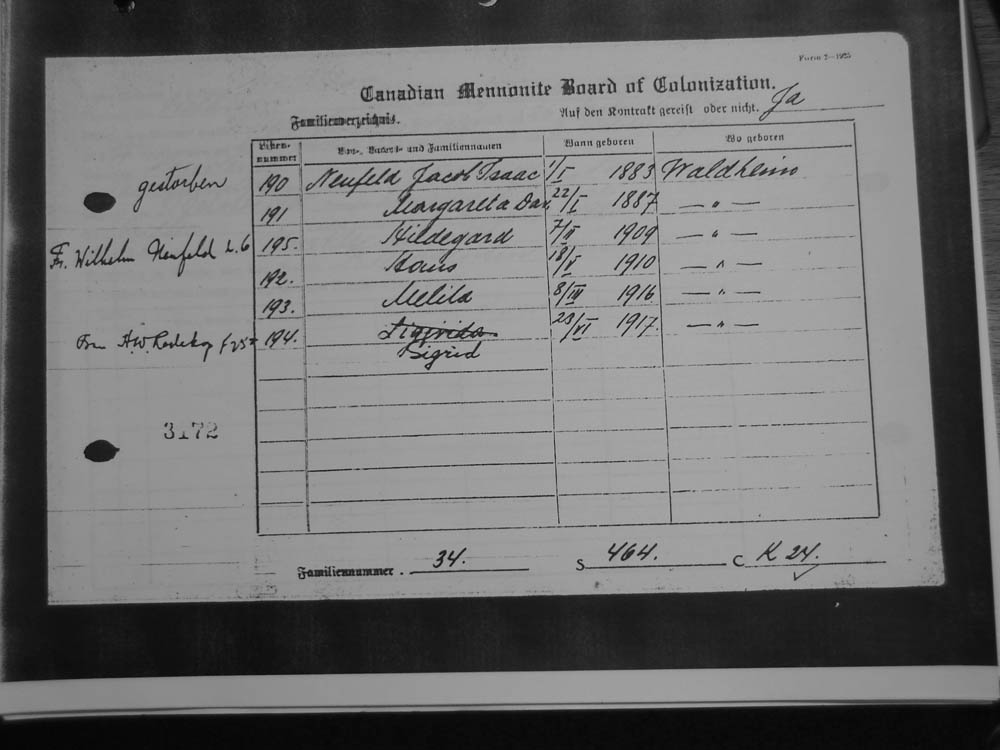 Form 2—1925
Canadian Mennonite Board of Colonization.
Familienverzeichnis. Auf den Kontrakt gereist oder nicht. Ja
Listen-nummer Vor-, Vaters- und Familiennamen Wann geboren Wo geboren
gestorben 190 Neufeld Jacob Isaac 1/I 1883 Waldheim
191 Margareta Dav. 22/I 1887 — " —
Fr. Wilhelm Neufeld L.6 195. Hildegard 7/II 1909 — " —
192. Hans 18/V 1910 — " —
193. Melita 8/III 1916 — " —
194. 23/VI 1917. — " —
Sigrid
3172
Familiennummer . 34. S 464. C K 24.